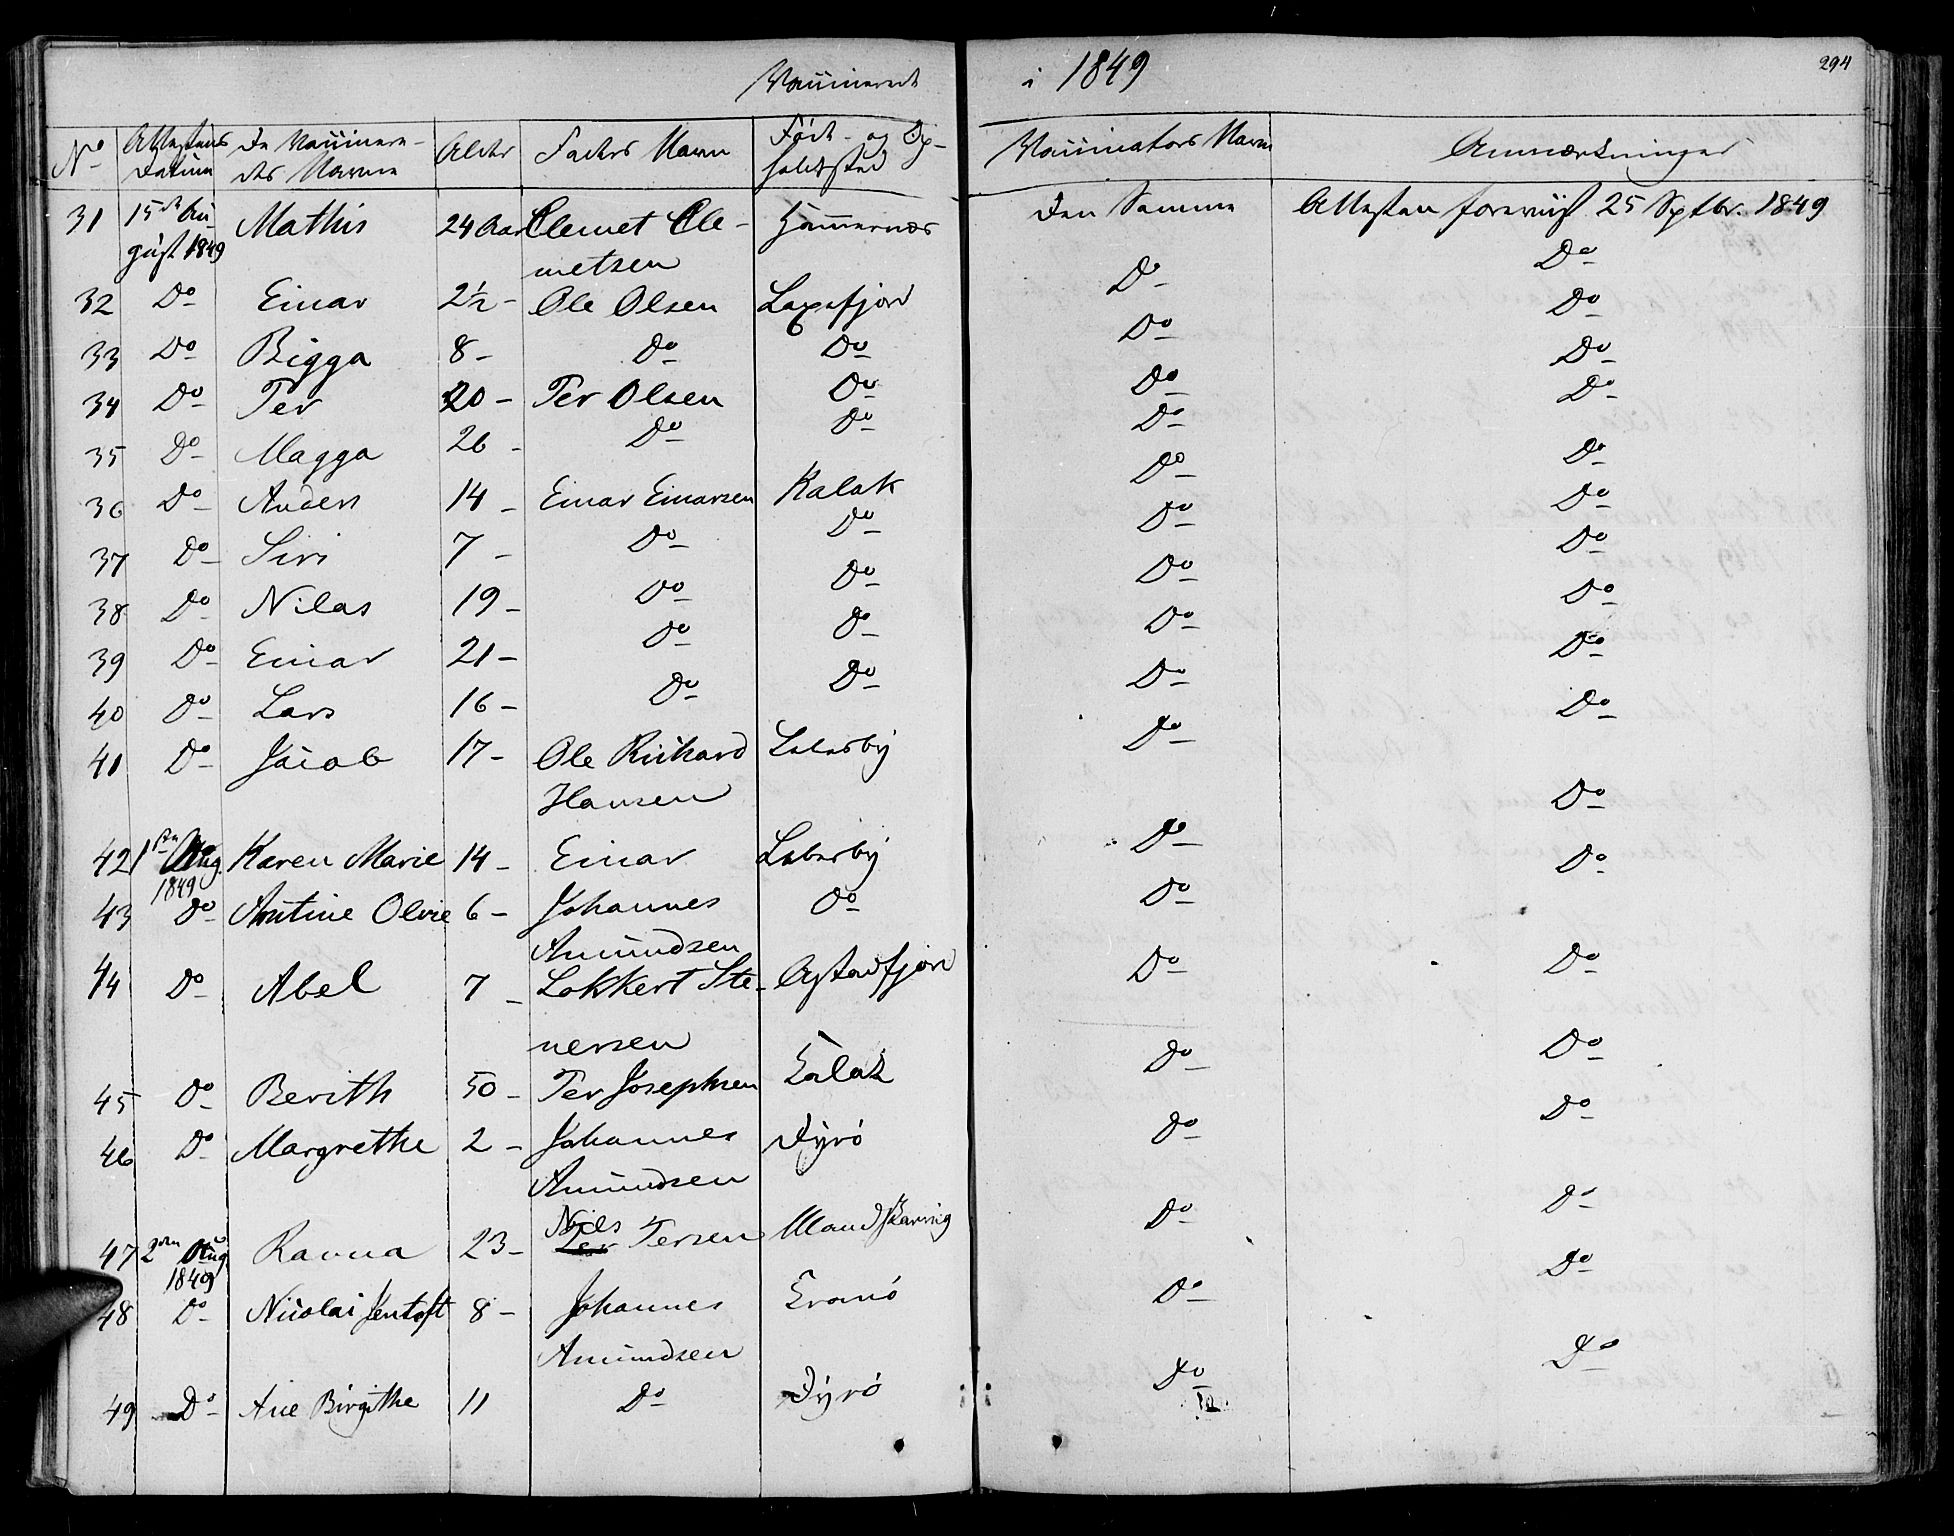 Vaccinerede i 1849 294
No Attestens Datum De Vaccinere- des Navne Alder Faders Navn Føde- og Op- holdssted Vaccinators Navn Anmærkninger
31 15de Au- gust 1849 Mathis 24 Aar Clemet Cle- metsen Hammernæs Den Samme Attesten foreviist 25 Sptbr. 1849
32 Do Einar 2½ - Ole Olsen Laxefjord Do Do
33 Do Bigga 8 - Do Do Do Do
34 Do Per 20 - Per Olsen Do Do Do
35 Do Magga 26 - Do Do Do Do
36 Do Anders 14 - Einar Einarsen Kalak Do Do
37 Do Siri 7 - Do Do Do Do
38 Do Nilas 19 - Do Do Do Do
39 Do Einar 21 - Do Do Do Do
40 Do Lars 16 - Do Do Do Do
41 Do Jacob 17 - Ole Richard Hansen Lebesby Do Do
42 1ste Aug. 1849 Karen Marie 14 - Einar Lebesby Do Do
43 Do Antine Olvie 6 - Johannes Amundsen Do Do Do
44 Do Abel 7 - Lokkert Ste- nersen Do Do
45 Do Berith 50 - Per Josephsen Kalak Do Do
46 Do Margrethe 2 - Johannes Amundsen Dyrø Do Do
47 2den Aug. 1849 Ranna 23 - Niels Persen Do Do
48 Do Nicolai Jentoft 8 - Johannes Amundsen Do Do
49 Do Ane Birgithe 11 Do Dyrø Do Do